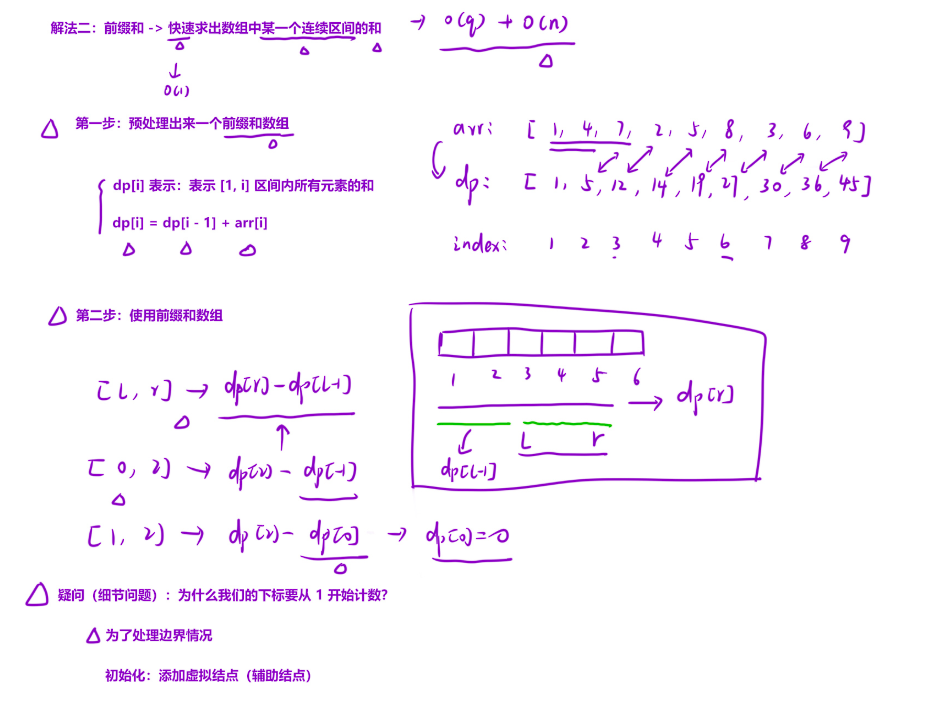 解法二：前缀和 -> 快速求出数组中某一个连续区间的和 → O(q) + O(n)
O(1)
第一步：预处理出来一个前缀和数组
arr: [1, 4, 7, 2, 5, 8, 3, 6, 9]
dp[i] 表示：表示 [1, i] 区间内所有元素的和
dp: [1, 5, 12, 14, 19, 27, 30, 36, 45]
dp[i] = dp[i - 1] + arr[i]
index: 1 2 3 4 5 6 7 8 9
第二步：使用前缀和数组
1 2 3 4 5 6
[l, r] → dp[r] - dp[l-1]
→ dp[r]
l r
dp[l-1]
[0, 2] → dp[2] - dp[-1]
[1, 2] → dp[2] - dp[0] → dp[0] = 0
疑问（细节问题）：为什么我们的下标要从 1 开始计数？
为了处理边界情况
初始化：添加虚拟结点（辅助结点）